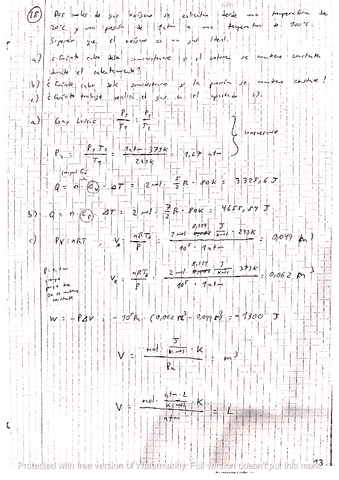 18. Dos moles de gas oxígeno se calientan desde una temperatura de
20°C y una presión de 1 atm a una temperatura de 100°C.
Suponer que el oxígeno es un gas ideal.
a) ¿Cuánto calor debe suministrarse si el volumen se mantiene constante
durante el calentamiento?
b) ¿Cuánto calor debe suministrarse si la presión se mantiene constante?
c) ¿Cuánto trabajo realiza el gas en el apartado b).
a) Gay Lussac P₁/T₁ = P₂/T₂
P₂ = P₁·T₂/T₁ = 1 atm · 373K/293K = 1,27 atm
Q = n · Cv · ΔT = 2 mol · 5/2 R · 80K = 3.325,6 J
b) Q = n · Cp · ΔT = 2 mol · 7/2 R · 80K = 4655,84 J
c) PV = nRT, V = nRT/P = 2 mol · 8,314 J/K·mol · 293K / 10⁵ · 1 atm = 0,049 m³
V = nRT/P = 2 mol · 8,314 J/K·mol · 373K / 10⁵ · 1 atm = 0,062 m³
W = -PΔV = -10⁵ · (0,062 m³ - 0,049 m³) = -1300 J
V = mol · J/K·mol · K / Pa = m³
V = mol · atm·L/K·mol · K / atm = L
13
Protected with free version of Watermarkly. Full version doesn't put this mark.